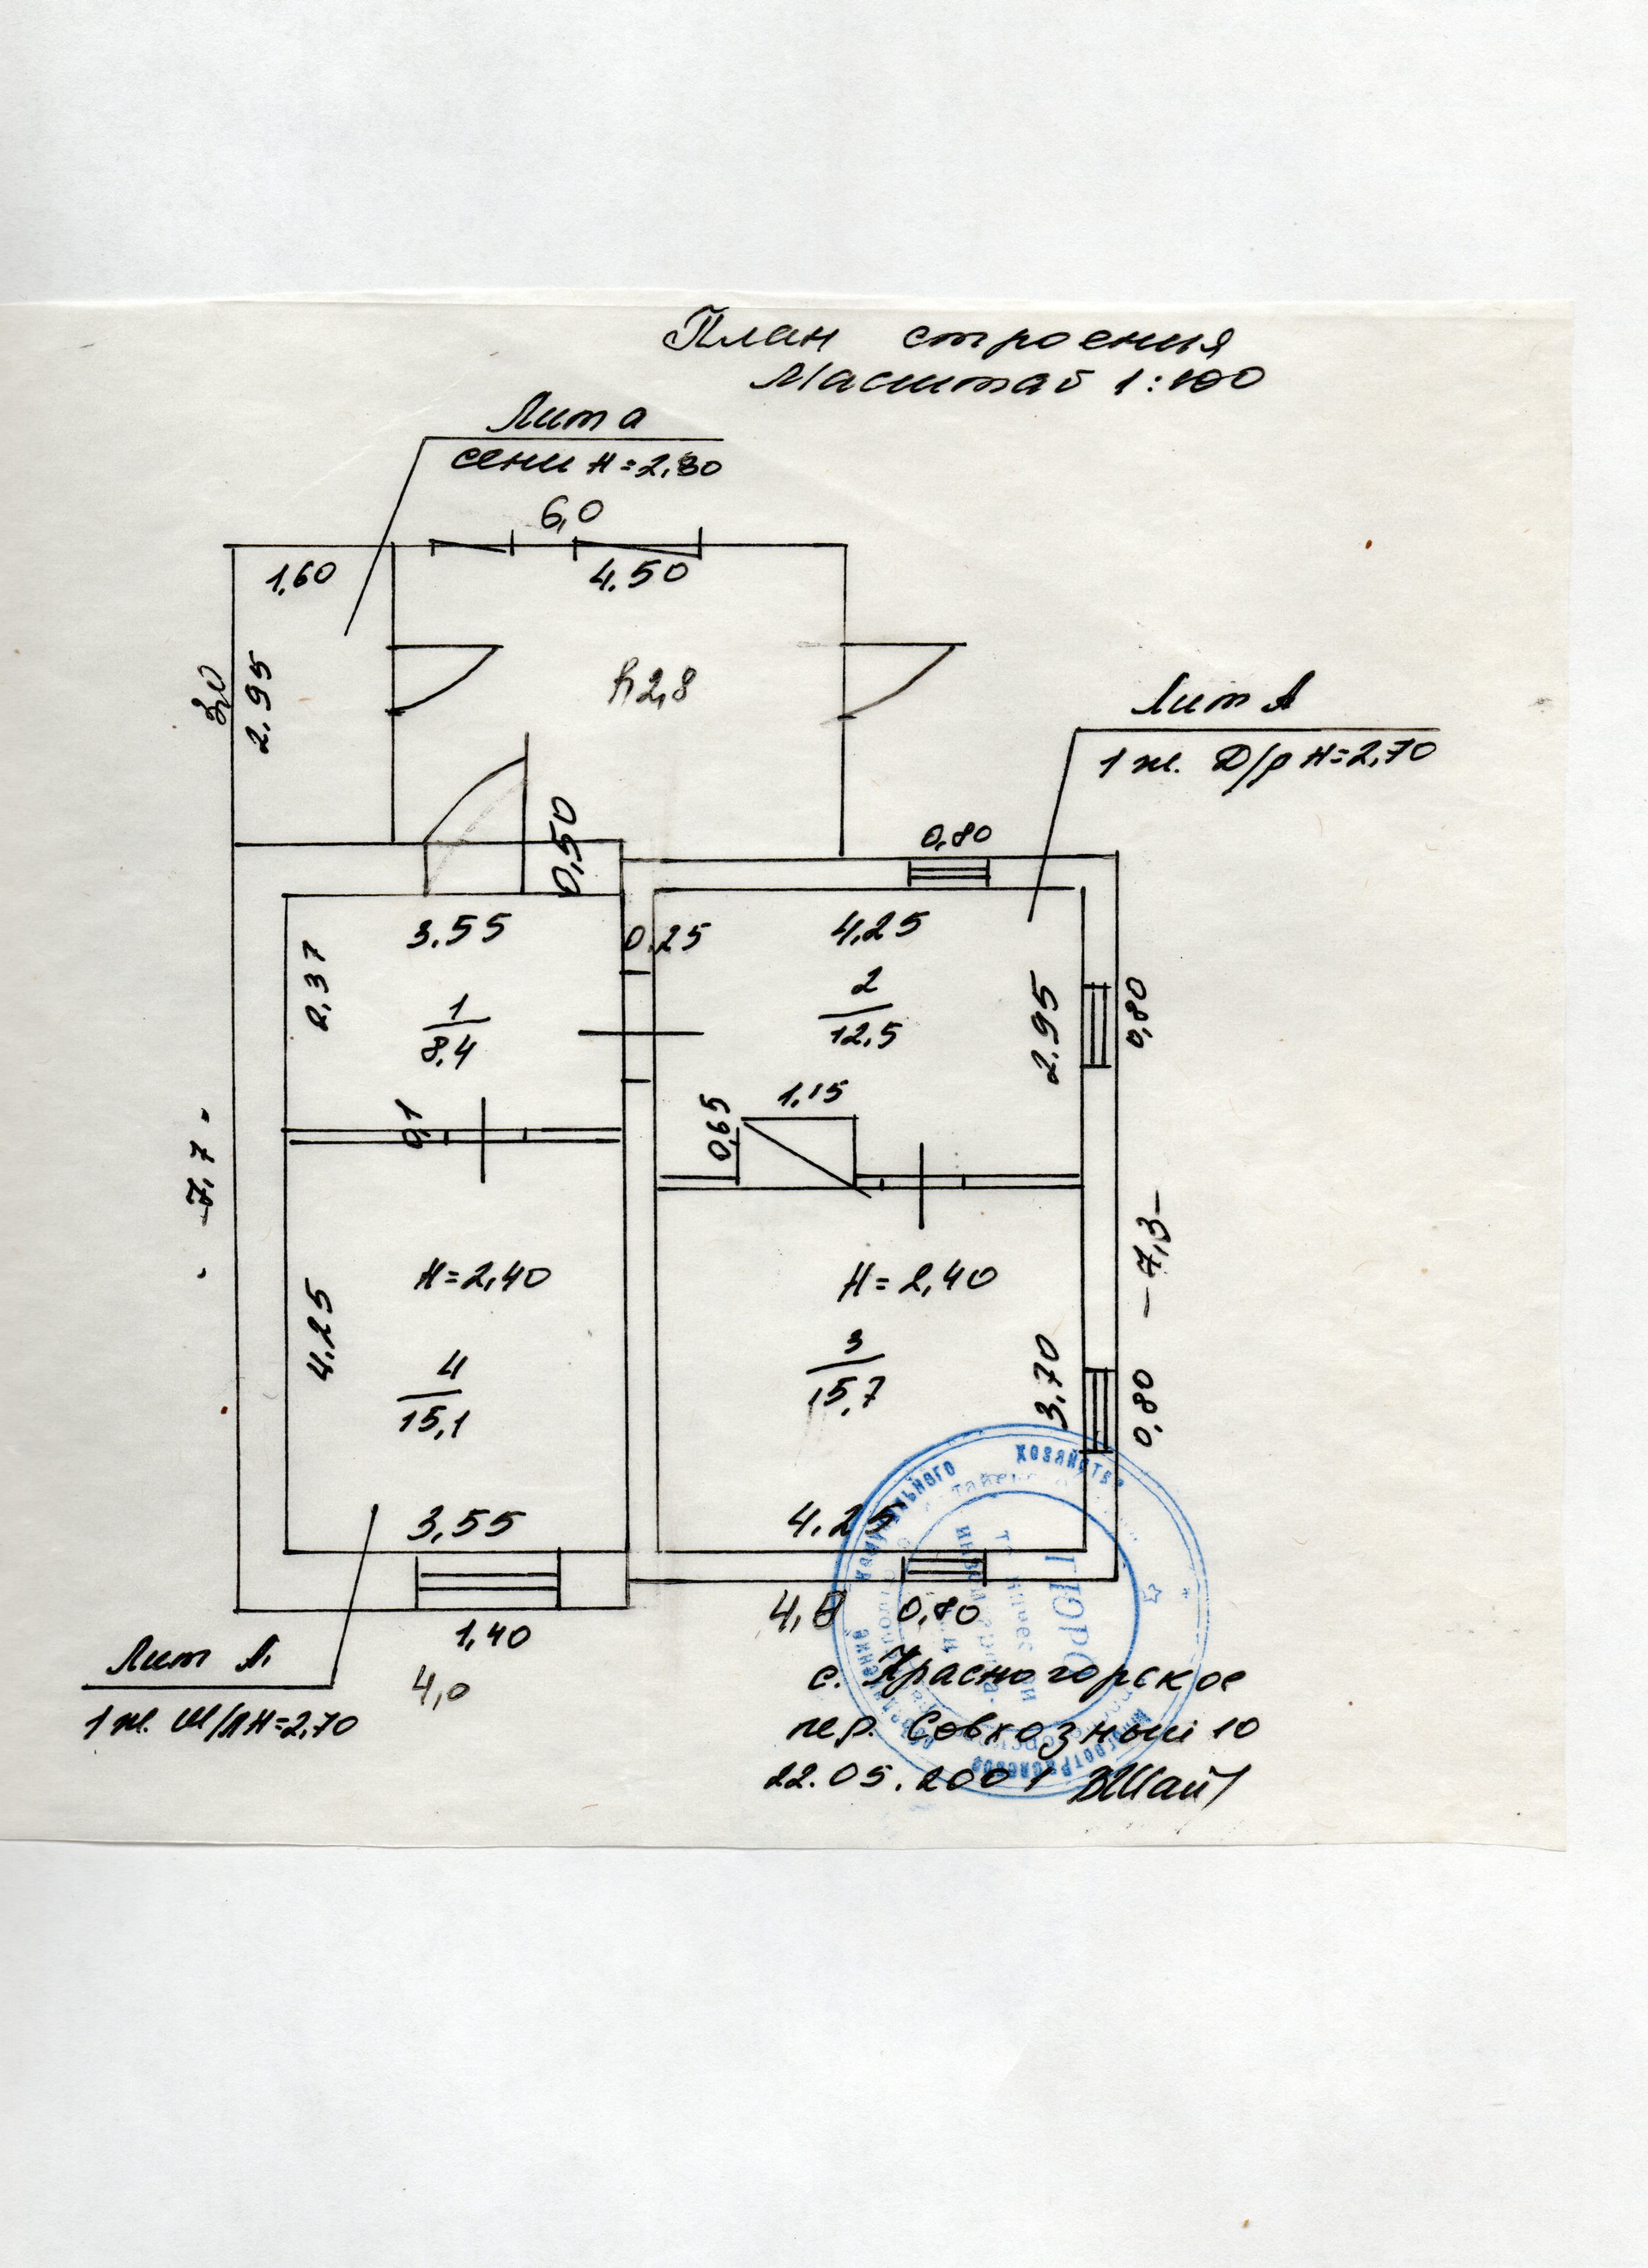 План строения
Масштаб 1:100
Лит а
сени H=2,80
6,0
1,60
4.50
3,0
2.95
h2,8
Лит А
1 эт. Д/р H=2,70
0,50
0,80
3.55
0,25
4,25
2,37
1
8,4
2
12,5
2.95
0,80
1,15
0,65
0,1
-7,7-
-7,3-
H=2,40
H=2,40
4.25
4
15,1
3
15,7
3,70
0,80
3,55
4.25
1,40
4,8
0,80
4,0
Лит А1
1 эт. Ш/л H=2,70
с. Красногорское
пер. Совхозный 10
22.05.2001
коммунального хозяйства
БЮРО